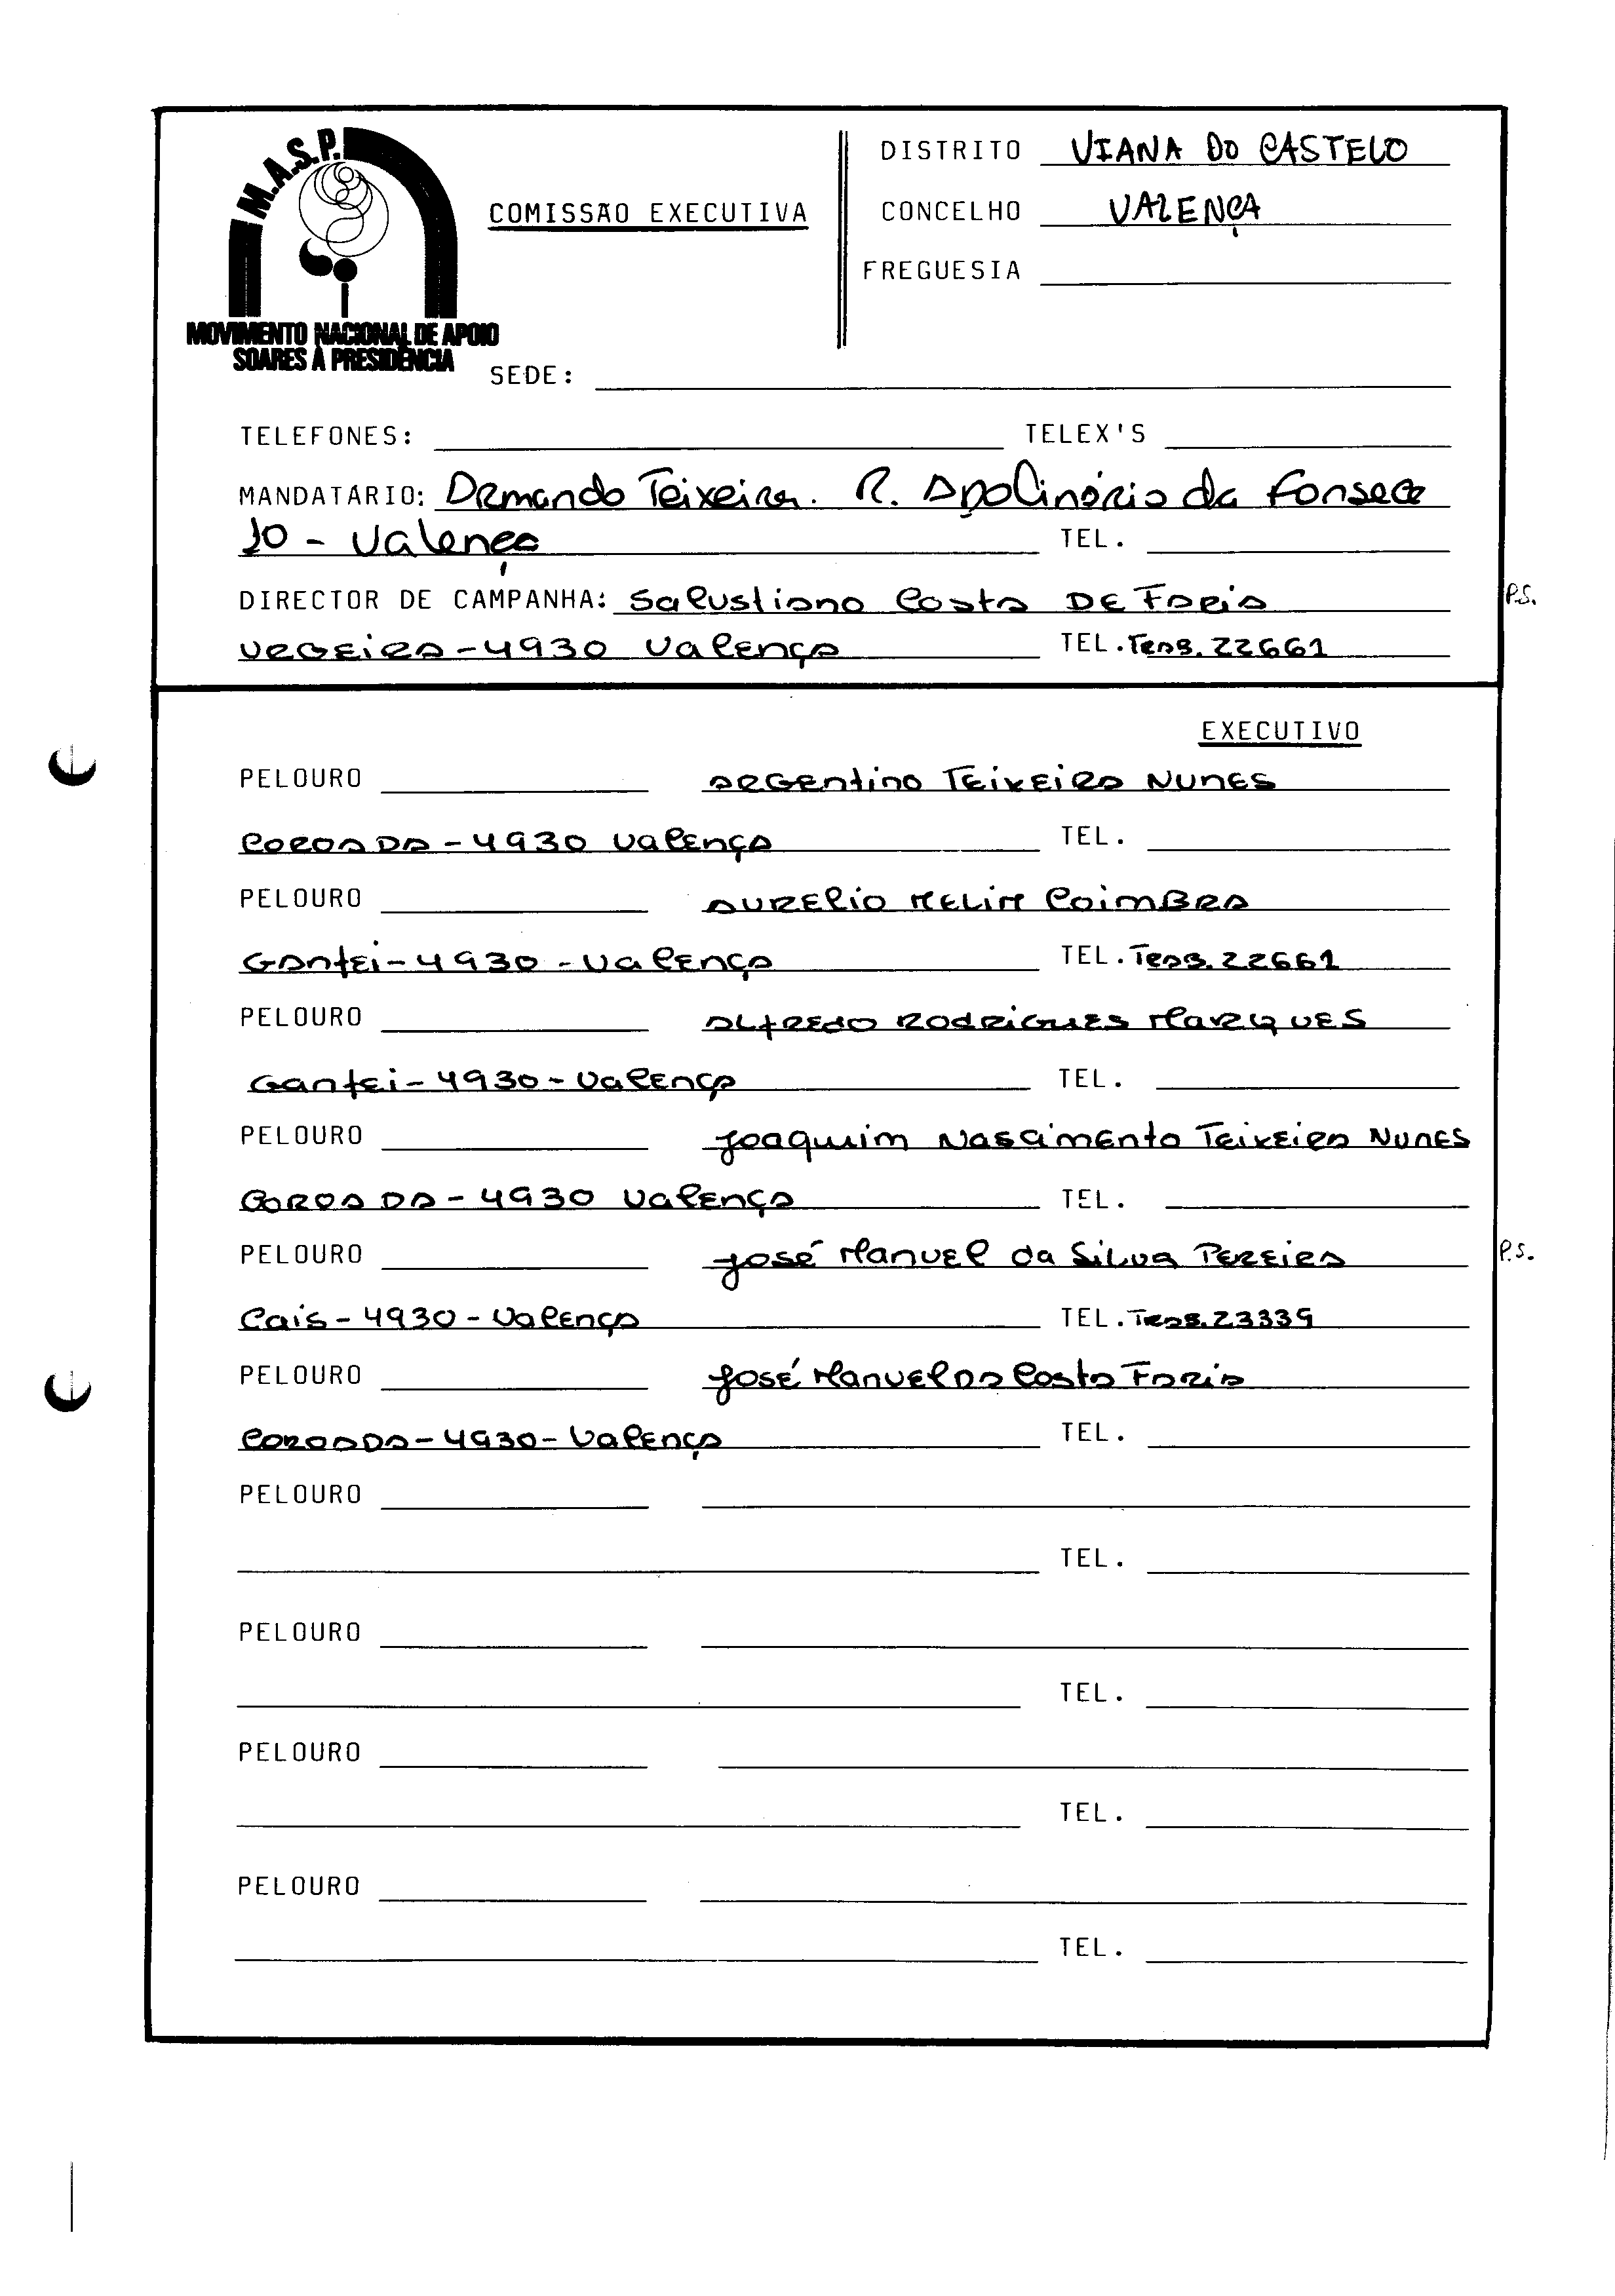 M.A.S.P.
MOVIMENTO NACIONAL DE APOIO
SOARES À PRESIDÊNCIA
COMISSÃO EXECUTIVA
DISTRITO VIANA DO CASTELO
CONCELHO VALENÇA
FREGUESIA
SEDE:
TELEFONES: TELEX'S
MANDATÁRIO: Armando Teixeira. R. Apolinário da Fonseca
10 - Valença TEL.
DIRECTOR DE CAMPANHA: Salustiano Costa DE Faria P.S.
URGEIRA - 4930 Valença TEL. TRAB. 22661
EXECUTIVO
PELOURO ARGENTINO TEIXEIRA NUNES
COROADA - 4930 Valença TEL.
PELOURO AURELIO MELIM COIMBRA
GANFEI - 4930 - Valença TEL. TRAB. 22661
PELOURO ALFREDO RODRIGUES MARQUES
GANFEI - 4930 - Valença TEL.
PELOURO Joaquim Nascimento Teixeira NUNES
COROADA - 4930 Valença TEL.
PELOURO José Manuel da Silva Pereira P.S.
Cais - 4930 - Valença TEL. TRAB. 23339
PELOURO José Manuel DA Costa Faria
COROADA - 4930 - Valença TEL.
PELOURO
TEL.
PELOURO
TEL.
PELOURO
TEL.
PELOURO
TEL.